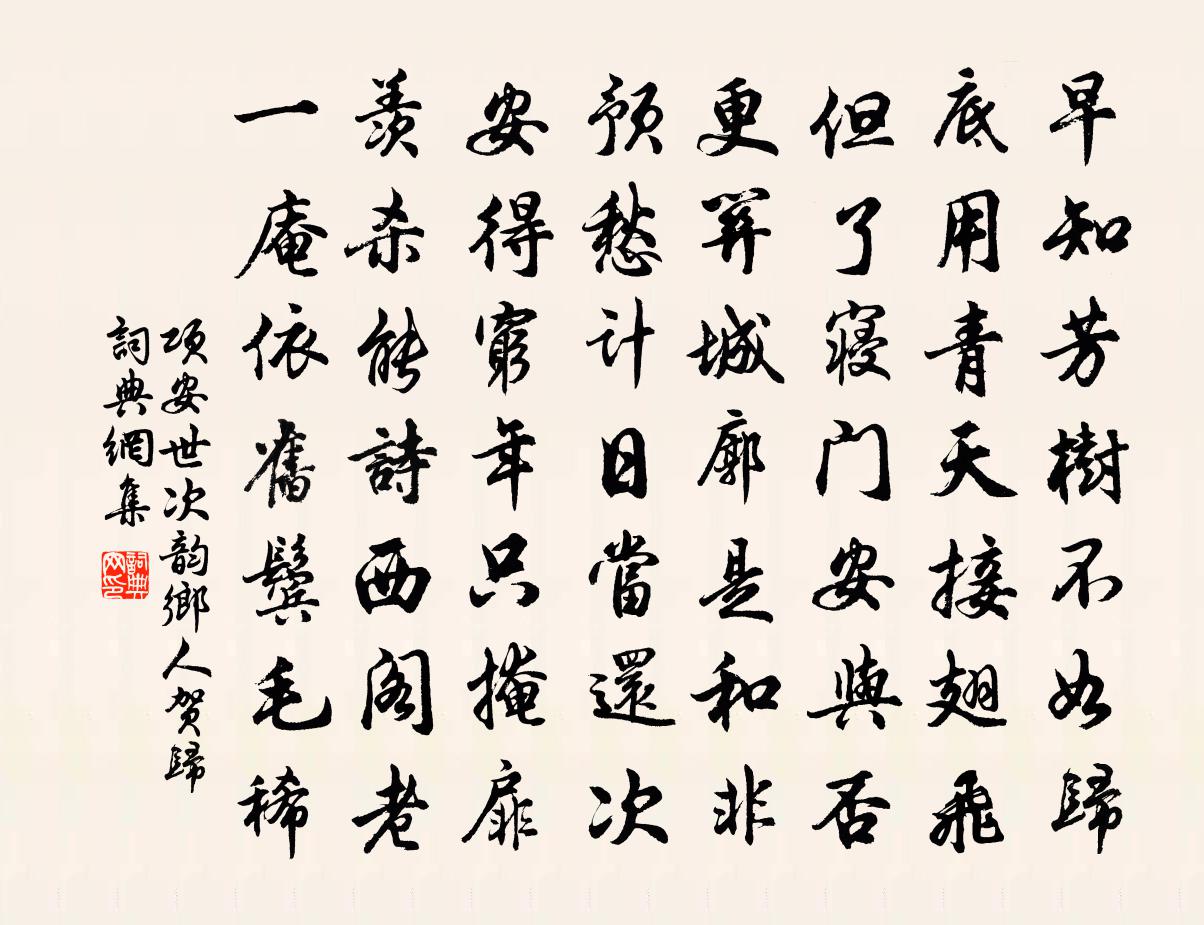 早知芳樹不如歸
底用青天接翅飛
但了寢門安與否
更城廓是和非
預愁計日當還次
安得窮年只掩扉
羨杀能詩西閣老
一庵依舊鬢毛稀
項安世次韵鄉人賀歸
詞典網集